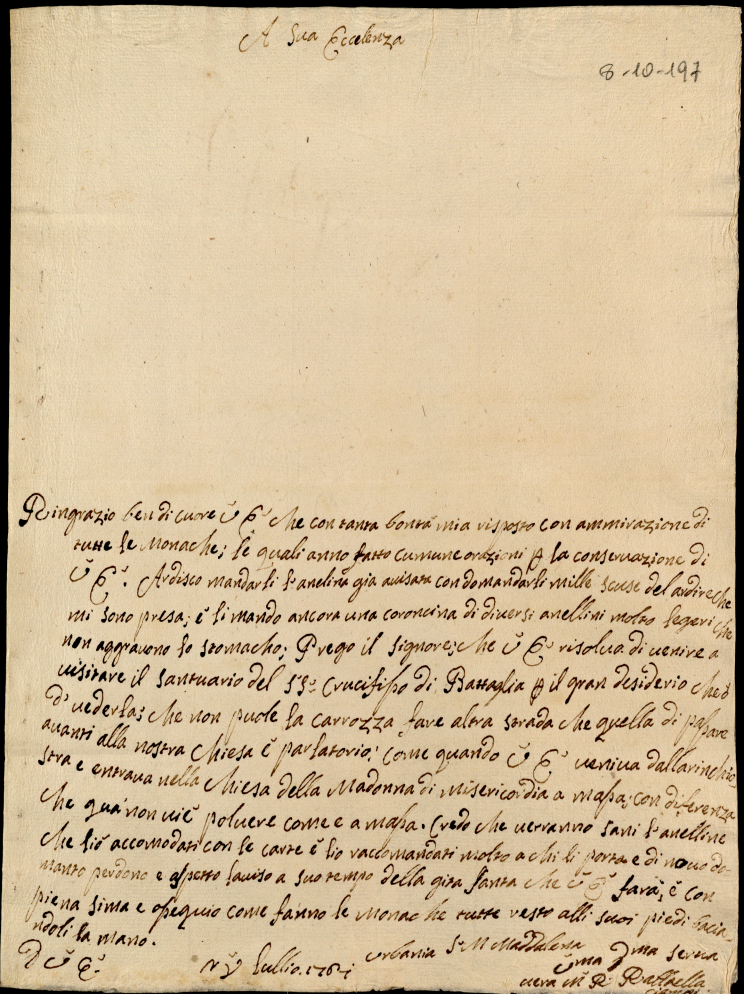 A Sua Eccelenza
8-10-197
Ringrazio ben di cuore V E che con tanta bontà mia risposto con ammirazione di
tutte le Monache; le quali anno fatto cumune orazioni p la conservazione di
V E. Ardisco mandarli l'anelina gia avisata con domandarli mille scuse del ardire che
mi sono presa; è li mando ancora una coroncina di diversi anellini molto legeri che
non aggravono lo stomacho; Prego il Signore; che V E risolva di venire a
visitare il Santuario del SS Crucifisso di Battaglia p il gran desiderio che ò
d'vederla; che non puole la carrozza fare altra strada che quella di passare
avanti alla nostra Chiesa è parlatorio; come quando V E veniva dalla
stra e entrava nella Chiesa della Madonna di Misericordia a Massa; con diferenza
che qua non vie polvere come e a Massa. Credo che verranno sani l'anelline
che liò accomodati con le carte è liò raccomandati molto a chi li porta e di nuovo do
manto perdono e aspetto laviso a suo tempo della gita santa che V E farà, è con
piena stima e osequio come fanno le Monache tutte resto alli suoi piedi bacia
ndoli la mano.
D V E. Lullio 1761 Urbania S M Maddalena
Vma Dma Serva
vera M R Raffaella